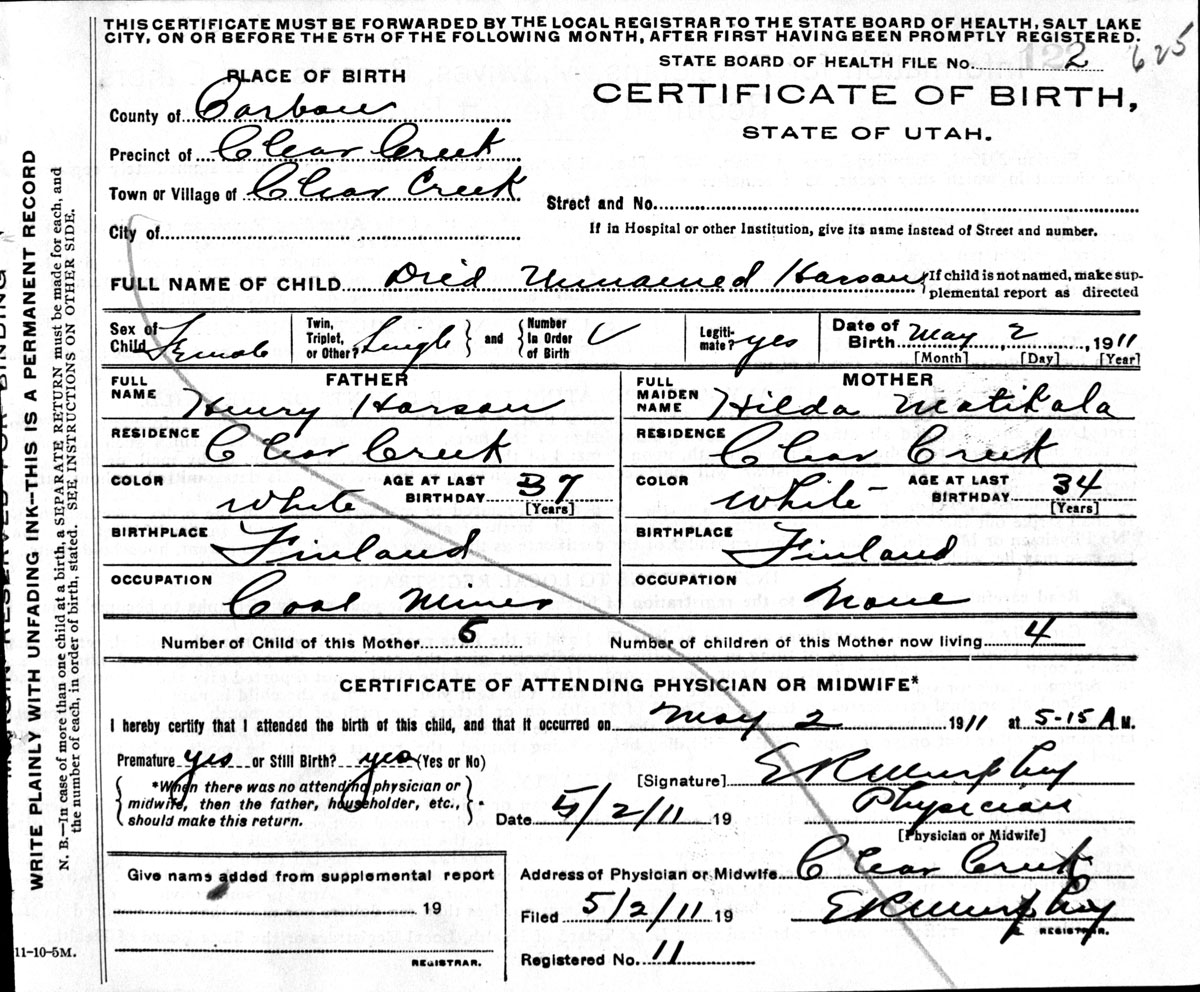 THIS CERTIFICATE MUST BE FORWARDED BY THE LOCAL REGISTRAR TO THE STATE BOARD OF HEALTH, SALT LAKE
CITY, ON OR BEFORE THE 5TH OF THE FOLLOWING MONTH, AFTER FIRST HAVING BEEN PROMPTLY REGISTERED.
STATE BOARD OF HEALTH FILE No. 2 625
PLACE OF BIRTH
CERTIFICATE OF BIRTH,
STATE OF UTAH.
County of Carbon
Precinct of Clear Creek
Town or Village of Clear Creek
Street and No.
City of
If in Hospital or other Institution, give its name instead of Street and number.
FULL NAME OF CHILD Died Unnamed Harson {If child is not named, make sup-
plemental report as directed
Sex of Child Female
Twin, Triplet, or Other? Single } and { Number In Order of Birth
Legiti- mate? yes
Date of Birth May 2, 1911
[Month] [Day] [Year]
FATHER
FULL NAME Henry Harson
RESIDENCE Clear Creek
COLOR White AGE AT LAST BIRTHDAY 37 [Years]
BIRTHPLACE Finland
OCCUPATION Coal Miner
MOTHER
FULL MAIDEN NAME Hilda Matikala
RESIDENCE Clear Creek
COLOR White AGE AT LAST BIRTHDAY 34 [Years]
BIRTHPLACE Finland
OCCUPATION None
Number of Child of this Mother 5 Number of children of this Mother now living 4
CERTIFICATE OF ATTENDING PHYSICIAN OR MIDWIFE*
I hereby certify that I attended the birth of this child, and that it occurred on May 2 1911 at 5-15 A M.
Premature yes or Still Birth? yes (Yes or No)
[Signature] E R Murphy
{ *When there was no attending physician or
midwife, then the father, householder, etc.,
should make this return. }
Date 5/2/11 19
Physician
[Physician or Midwife]
Give name added from supplemental report
19
REGISTRAR.
Address of Physician or Midwife Clear Creek
Filed 5/2/11 19 E R Murphy
REGISTRAR.
Registered No. 11
11-10-5M.
MARGIN RESERVED FOR BINDING
WRITE PLAINLY WITH UNFADING INK--THIS IS A PERMANENT RECORD
N. B.—In case of more than one child at a birth, a SEPARATE RETURN must be made for each, and
the number of each, in order of birth, stated. SEE INSTRUCTION ON OTHER SIDE.